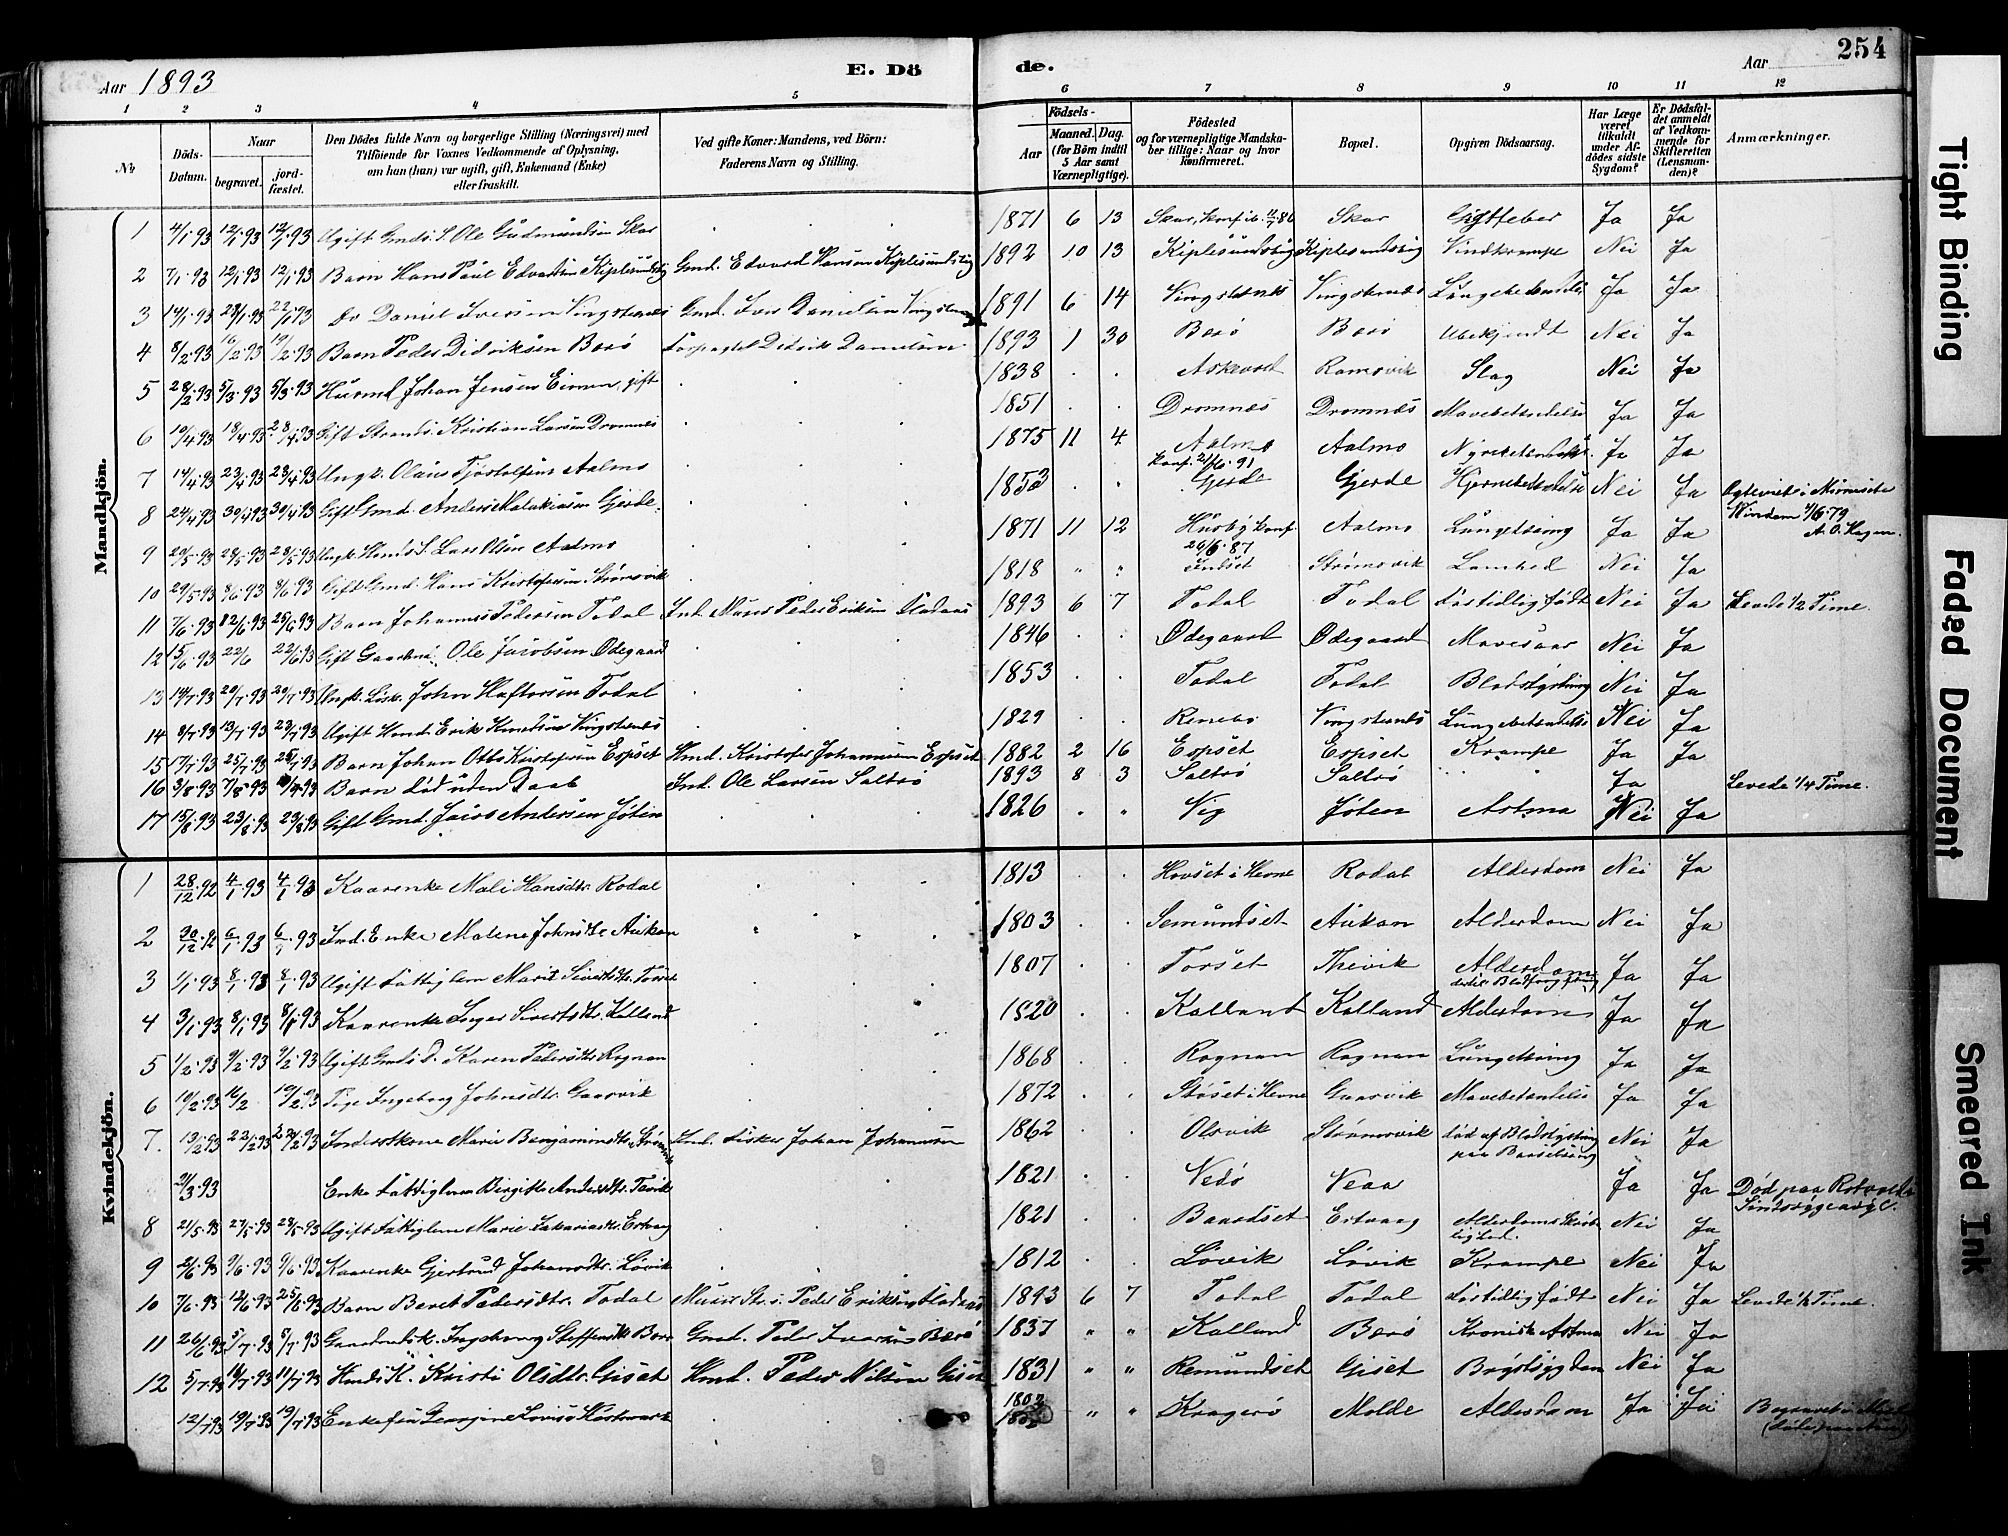 Aar 1893 E. Dö de. Aar 254
1 2 3 4 5 6 7 8 9 10 11 12
No.
Döds-Datum.
Naar
begravet.
jord-fæstet.
Den Dödes fulde Navn og borgerlige Stilling (Næringsvei) med
Tilföiende for Voxnes Vedkommende af Oplysning,
om han (hun) var ugift, gift, Enkemand (Enke)
eller fraskilt.
Ved gifte Koner: Mandens, ved Börn:
Faderens Navn og Stilling.
Födsels-
Aar
Maaned. Dag.
(for Börn indtil
5 Aar samt
Værnepligtige).
Födested
og for værnepligtige Mandska-
ber tillige: Naar og hvor
konfirmeret.
Bopæl.
Opgiven Dödsaarsag.
Har Læge
været
tilkaldt
under Af-
dödes sidste
Sygdom?
Er Dödsfal-
det anmeldt
af Vedkom-
mende for
Skifteretten
(Lensman-
den)?
Anmærkninger.
Mandkjön.
1 4/1.93 12/1.93 12/1.93 Ugift Gmds. S. Ole Gudmundsen Skar 1871 6 13 Skar, Skar Ja Ja
2 7/1.93 12/1.93 12/1.93 Barn Hans Paul Edvardsen Kiplesundvig Gmd. Edvard Hansen Kiplesundvig 1892 10 13 Kiplesundvig Kiplesundvig Vindkrampe Nei Ja
3 14/1.93 23/1.93 22/1.93 Do Daniel Iversen Vingsternes Gmd. Iver Danielsen 1891 6 14 Vingsternes Vingsternes Lungebetændelse Ja Ja
4 8/2.93 16/2.93 19/2.93 Barn Peder Didriksen Barö Didrik Danielsen 1893 1 30 Barö Barö Ubekjendt Nei Ja
5 28/2.93 5/3.93 5/3.93 Husmd. Johan Jensen gift 1838 Ramsvik Slag Nei Ja
6 10/4.93 18/4.93 23/4.93 Gift Strands. Kristian Larsen Dromnes 1851 Dromnæs Dromnæs Mavebetændelse Ja Ja
7 14/4.93 23/4.93 23/4.93 Ungk. Olaus Aalmo 1875 11 4 Aalmo Aalmo Nyrebetændelse Ja Ja
konf. 21/6.91
8 24/4.93 30/4.93 30/4.93 Gift Gmd. Anders Malakiasen Gjerde 1853 Gjerde Gjerde Hjernebetændelse Nei Ja
9 20/5.93 28/5.93 28/5.93 Ungk. Lars Olsen Aalmo 1871 11 12 Husby konf Aalmo Lungetæring Ja Ja
26/6.87
10 29/5.93 8/6.93 8/6.93 Gift Gmd. Hans Kristofersen Strömsvik 1818 Strömsvik Lamhed Nei Ja
11 7/6.93 12/6.93 25/6.93 Barn Johannes Pedersen Todal Ind. Murer Peder Eriksen 1893 6 7 Todal Todal fortidlig födt Nei Ja Levede 1/2 Time.
12 15/6.93 22/6 22/6.93 Gift Ole Jacobsen Ødegaard 1846 Ødegaard Ødegaard Mavesaar Nei Ja
13 14/7.93 20/7.93 20/7.93 Ungk. John Haftorsen Todal 1853 Todal Todal Blodstyrtning Nei Ja
14 8/7.93 13/7.93 23/7.93 Ugift Erik Knudsen Vingsternes 1829 Vingsternes Lungebetændelse Nei Ja
15 17/7.93 25/7.93 25/7.93 Barn Johan Otto Kristofersen Espset Hmd. Kristofer Johannesen Espset 1882 2 16 Espset Espset Krampe Ja Ja
16 3/8.93 7/8.93 Barn död uden Daab Ind. Ole Larsen Saltrö 1893 8 3 Saltrö Saltrö Ja Levede 1/4 Time.
17 15/8.93 23/8.93 23/8.93 Gift Gmd. Jacob Andersen Jöten 1826 Vig Jöten Astma Nei Ja
Kvindekjön.
1 28/12.92 4/1.93 4/1.93 Kaarenke Mali Hansdtr. Rodal 1813 Hovset i Hevne Rodal Alderdom Nei Ja
2 30/12.92 6/1.93 6/1.93 Ind. Enke Malene Johnsdtr. Aukan 1803 Semundset Aukan Alderdom Nei Ja
3 1/1.93 8/1.93 8/1.93 Ugift Fattiglem Marit Sivertsdtr. Torset 1807 Torset Thevik Alderdom Ja Ja
4 3/1.93 8/1.93 8/1.93 Kaarenke Inger Sivertsdtr. Kalland 1820 Kalland Kalland Alderdom Ja Ja
5 1/2.93 9/2.93 9/2.93 Ugift Gmds. D. Karen Pedersdtr. Rognan 1868 Rognan Rognan Lungetæring Ja Ja
6 10/2.93 16/2 19/2.93 Pige Ingeborg Johnsdtr. Gaasvik 1872 Stöset i Hevne Gaasvik Mavebetændelse Ja Ja
7. 13/2.93 22/2.93 22/2.93 Inderstkone Marie Benjaminsdtr. Ind. Fisker Johan Johannesen 1862 Olsvik Strömsvik död af Blodstyrtning Nei Ja
paa Barselseng
2/3.93 Enke Fattiglem Birgitte Andersdtr. 1821 Vedö Veaa Ja Ja Död paa Rotvolds
Sindssygeasyl.
8 21/5.93 27/5.93 28/5.93 Ugift Fattiglem Marie Zakariasdtr. Ertvaag 1821 Baardset Ertvaag Alderdoms Skröbe- Nei Ja
lighed.
9 2/6.93 9/6.93 9/6.93 Kaarenke Gjertrud Johansdtr. Lövik 1812 Lövik Lövik Krampe Nei Ja
10 7/6.93 12/6.93 25/6.93 Barn Beret Pedersdtr. Todal Murer Peder Eriksen 1893 6 7 Todal Todal fortidlig födt Nei Ja Levede 1/2 Time.
11 26/6.93 5/7.93 5/7.93 Gaardmdsk. Ingeborg Steffensdtr. Barö Gmd. Peder Ivarsen Barö 1837 Kalland Barö Kronisk Astma Nei Ja
12 5/7.93 11/7.93 11/7.93 Hmds. K. Kristi Olsdtr. Giset Hmd. Peder Nilsen Giset 1831 Remundset Giset Brystsygdom Nei Ja
12/7.93 19/7.93 19/7.93 Enkefru Georgine Lovise 1803 Kragerö Molde Alderdom Ja Ja Begravet i
Tight Binding
Faded Document
Smeared Ink